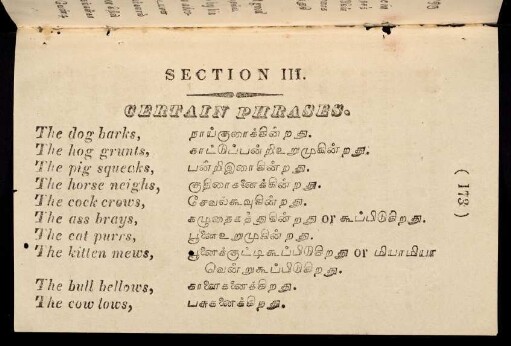 SECTION III.
CERTAIN PHRASES.
The dog barks, நாய்குலைக்கின்றது.
The hog grunts, காட்டுப்பன்றிஉறுமுகின்றது.
The pig squeaks, பன்றிஇலாகின்றது.
The horse neighs, குதிரைகனைக்கின்றது.
The cock crows, சேவல்கூவுகின்றது.
The ass brays, கழுதைகத்துகின்றது or கூப்பிடுகிறது.
The cat purrs, பூனைஉறுமுகின்றது.
The kitten mews, பூனைக்குட்டிகூப்பிடுகிறது or மியாமியா
வென்றுகூப்பிடுகிறது.
The bull bellows, காளைகனைக்கிறது.
The cow lows, பசுகனைக்கிறது.
( 173 )